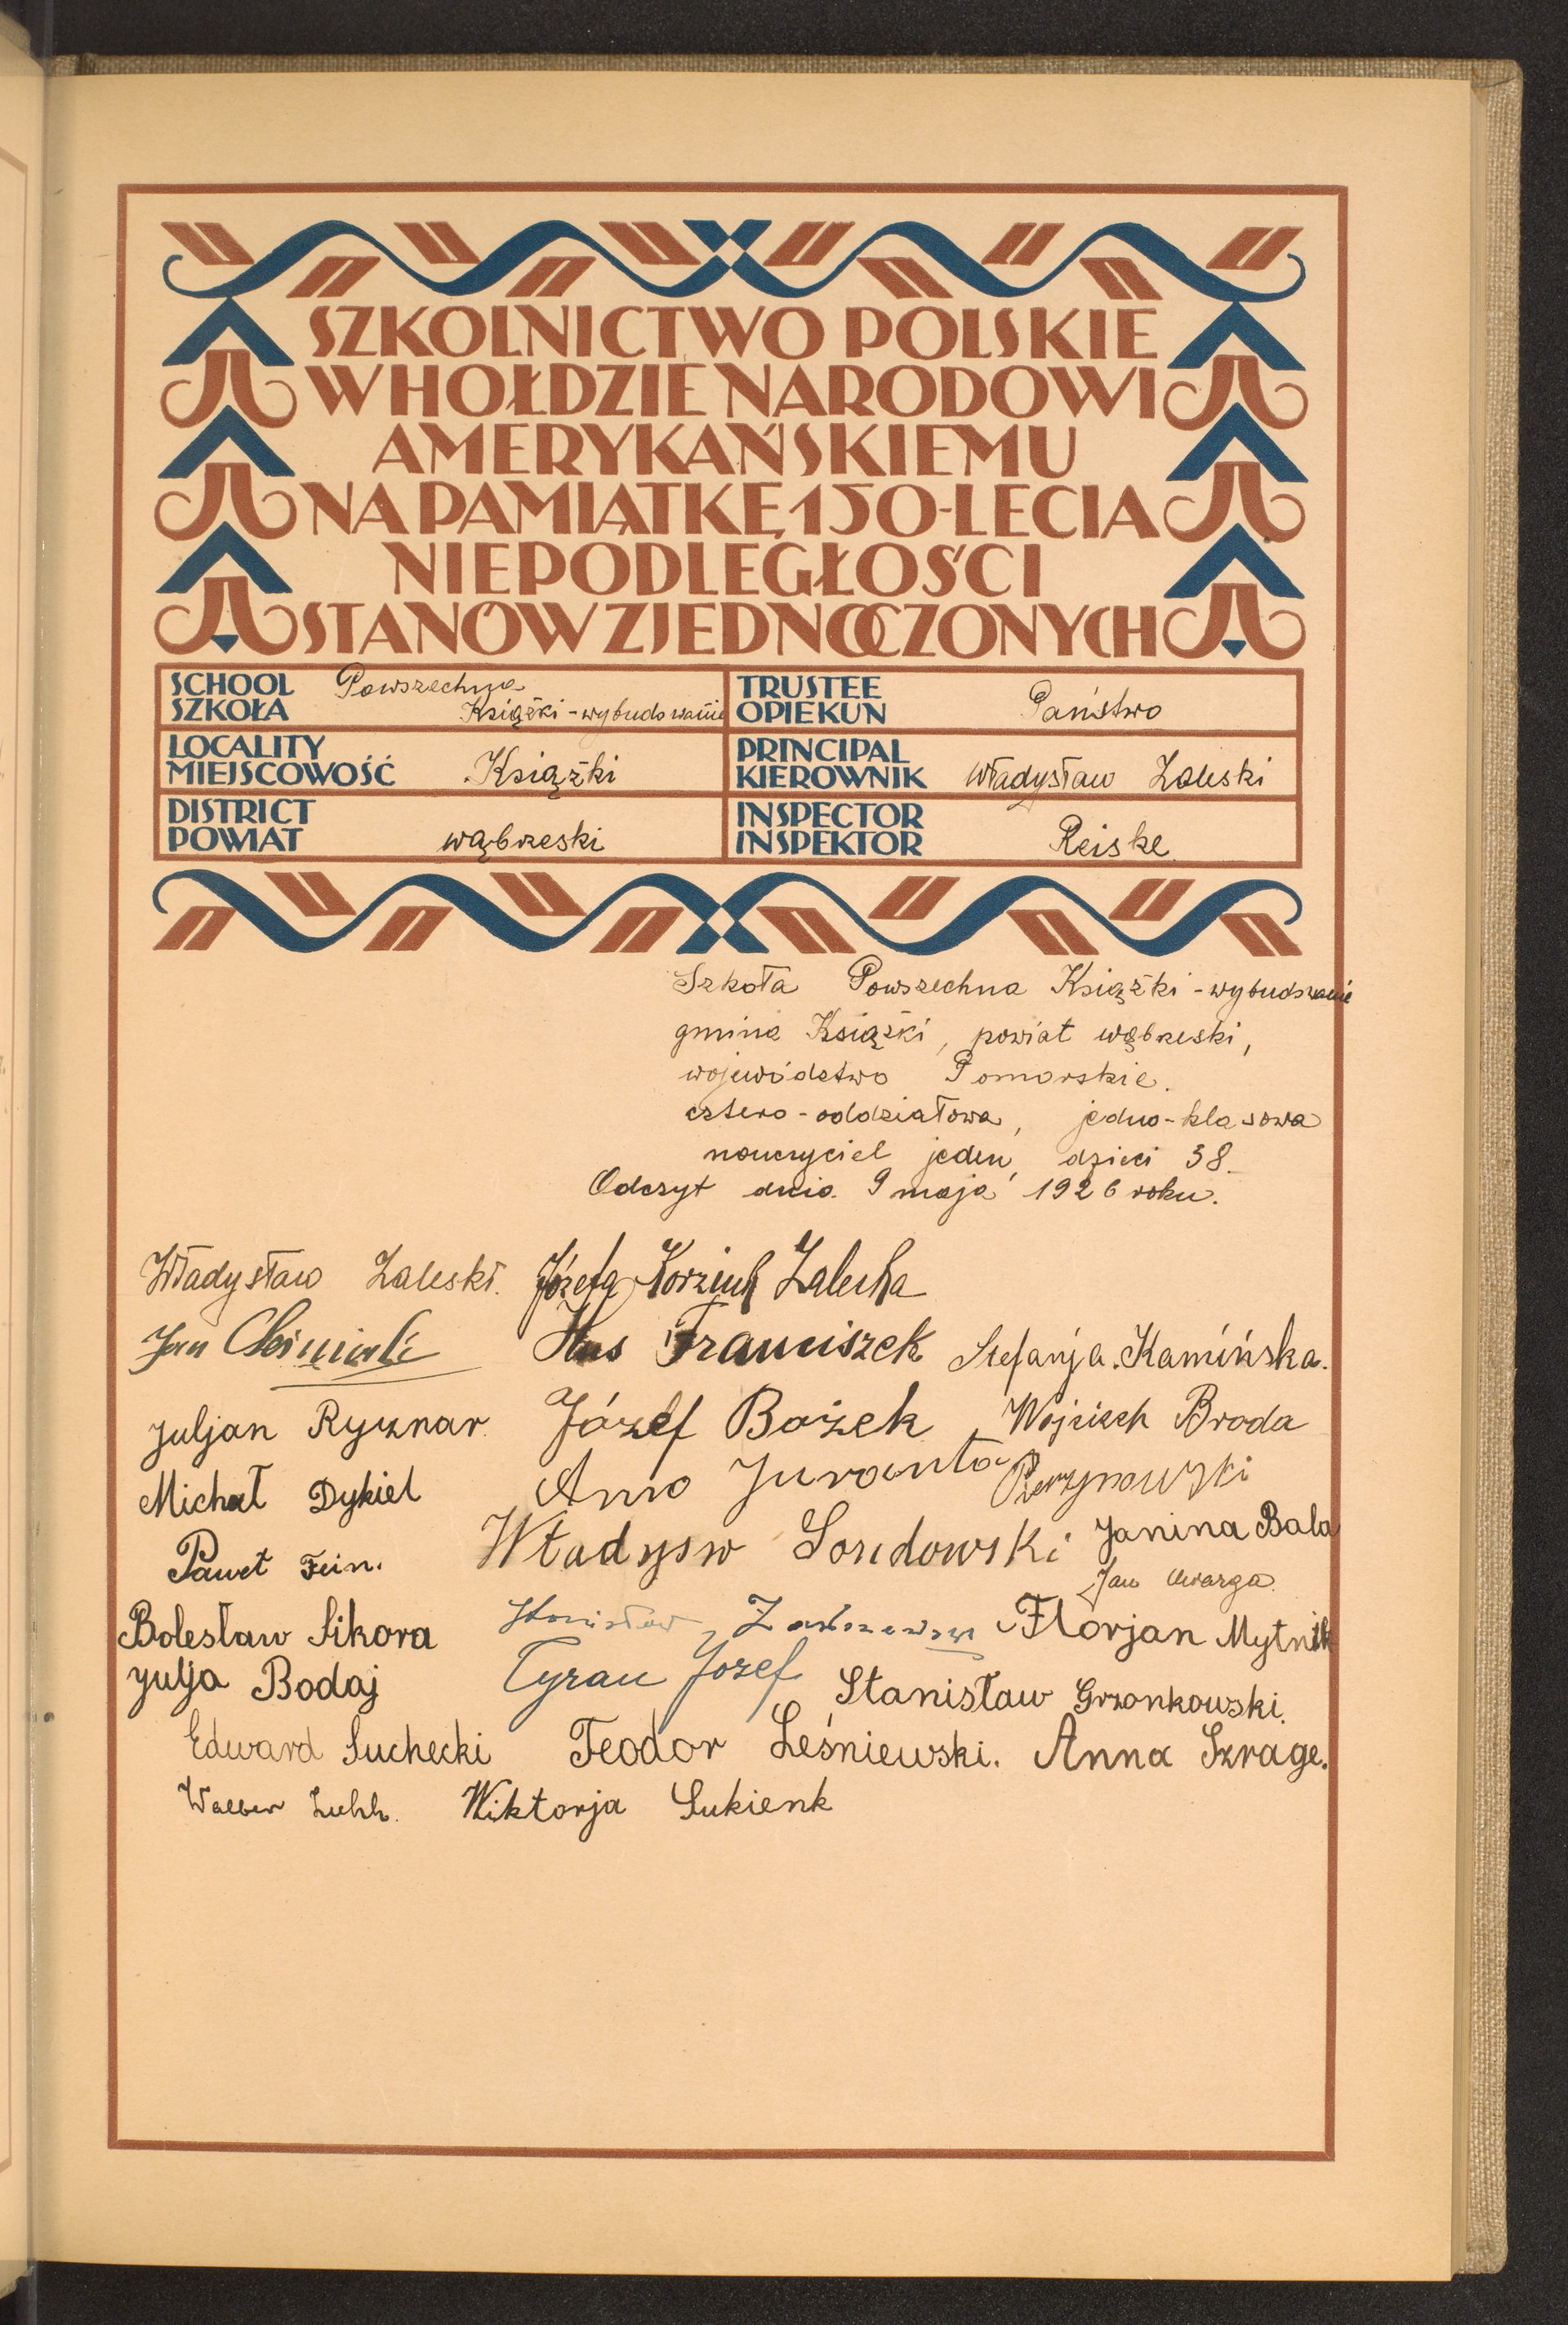 SZKOLNICTWO POLSKIE
W HOŁDZIE NARODOWI
AMERYKAŃSKIEMU
NA PAMIĄTKĘ 150-LECIA
NIEPODLEGŁOŚCI
STANÓW ZJEDNOCZONYCH
SCHOOL SZKOŁA Powszechna
Książki - wybudowanie
TRUSTEE OPIEKUN Państwo
LOCALITY MIEJSCOWOŚĆ Książki
PRINCIPAL KIEROWNIK Władysław Zaleski
DISTRICT POWIAT wąbrzeski
INSPECTOR INSPEKTOR Reiske
Szkoła Powszechna Książki - wybudowanie
gmina Książki, powiat wąbrzeski,
województwo Pomorskie.
cztero-oddziałowa, jedno-klasowa
nauczyciel jeden, dzieci 38
Odczyt dnia 9 maja 1926 roku.
Władysław Zaleski. Józefa Zalecha
Jan Franciszek Stefanja Kamińska.
Juljan Rycznar Józef Bożek Wojciech Broda
Michał Dykiel Juranta
Paweł Fein. Władysw Janina Bala
Jan
Bolesław Sikora Stanisław Florjan Mytnik
Julja Bodaj Tyrau Jozef Stanisław Grzonkowski.
Edward Suchecki Teodor Leśniewski. Anna Szrage.
Wiktorja Sukienk